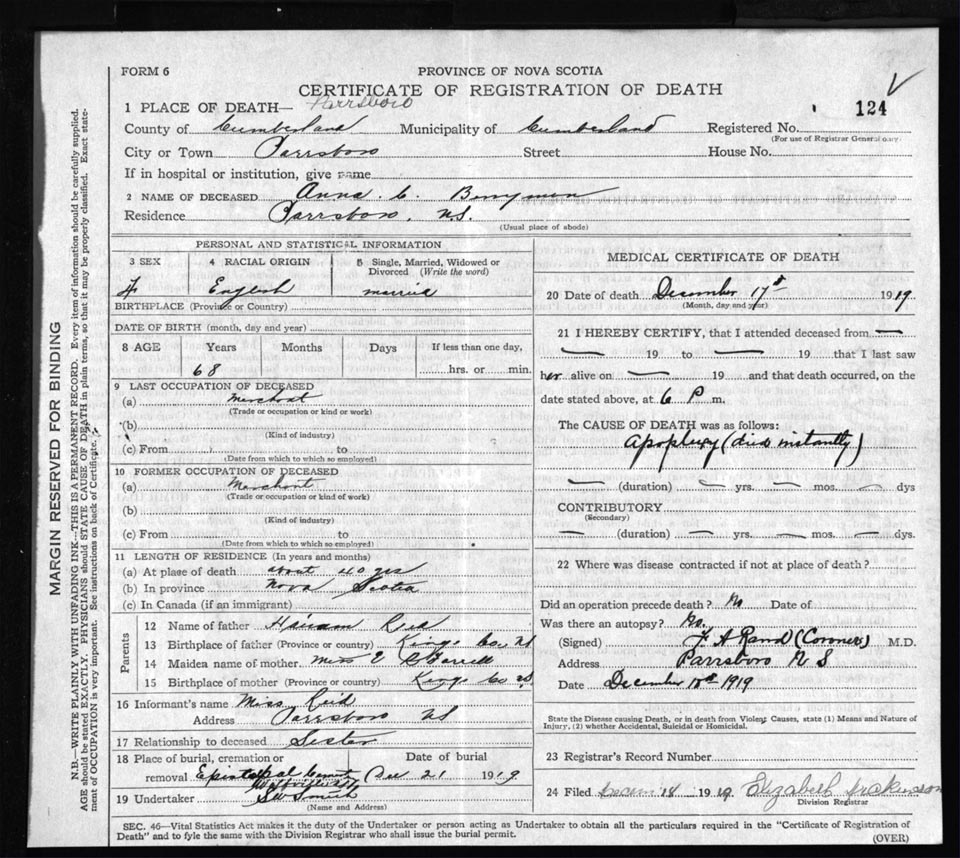 FORM 6
PROVINCE OF NOVA SCOTIA
CERTIFICATE OF REGISTRATION OF DEATH
124
1 PLACE OF DEATH— Parrsboro
County of Cumberland Municipality of Cumberland Registered No.
(For use of Registrar General only.
City or Town Parrsboro Street House No.
If in hospital or institution, give name
2 NAME OF DECEASED Anna C. Berryman
Residence Parrsboro, N.S.
(Usual place of abode)
PERSONAL AND STATISTICAL INFORMATION
3 SEX 4 RACIAL ORIGIN 5 Single, Married, Widowed or Divorced (Write the word)
F English married
BIRTHPLACE (Province or Country)
DATE OF BIRTH (month, day and year)
8 AGE Years Months Days If less than one day,
68 hrs. or min.
9 LAST OCCUPATION OF DECEASED
(a) Merchant
(Trade or occupation or kind or work)
(b)
(Kind of industry)
(c) From to
(Date from which to which so employed)
10 FORMER OCCUPATION OF DECEASED
(a) Merchant
(Trade or occupation or kind of work)
(b)
(Kind of industry)
(c) From to
(Date from which to which so employed)
11 LENGTH OF RESIDENCE (In years and months)
(a) At place of death about 40 yrs
(b) In province Nova Scotia
(c) In Canada (if an immigrant)
Parents
12 Name of father Hiram Reid
13 Birthplace of father (Province or country) Kings Co. NS
14 Maiden name of mother Miss E
15 Birthplace of mother (Province or country) Kings Co NS
16 Informant's name Miss Reid
Address Parrsboro NS
17 Relationship to deceased Sister
18 Place of burial, cremation or Date of burial
removal Episcopal Dec 21 1919
19 Undertaker
(Name and Address)
MEDICAL CERTIFICATE OF DEATH
20 Date of death December 17th 1919
(Month, day and year)
21 I HEREBY CERTIFY, that I attended deceased from —
— 19 to — 19 that I last saw
her alive on — 19 and that death occurred, on the
date stated above, at 6 P m.
The CAUSE OF DEATH was as follows:
Apoplexy (died instantly)
— (duration) — yrs. — mos. — dys
CONTRIBUTORY
(Secondary)
— (duration) — yrs. — mos. — dys.
22 Where was disease contracted if not at place of death?
Did an operation precede death? No Date of
Was there an autopsy? No.
(Signed) F A Rand (Coroner) M.D.
Address Parrsboro N S
Date December 18th 1919
State the Disease causing Death, or in death from Violent Causes, state (1) Means and Nature of
Injury, (2) whether Accidental, Suicidal or Homicidal.
23 Registrar's Record Number
24 Filed 18 1919 Elizabeth
Division Registrar
SEC. 46—Vital Statistics Act makes it the duty of the Undertaker or person acting as Undertaker to obtain all the particulars required in the "Certificate of Registration of
Death" and to fyle the same with the Division Registrar who shall issue the burial permit.
(OVER)
MARGIN RESERVED FOR BINDING
N.B.—WRITE PLAINLY WITH UNFADING INK—THIS IS A PERMANENT RECORD. Every item of information should be carefully supplied.
AGE should be stated EXACTLY. PHYSICIANS should STATE CAUSE OF DEATH in plain terms, so that it may be properly classified. Exact state-
ment of OCCUPATION is very important. See instructions on back of Certificate.